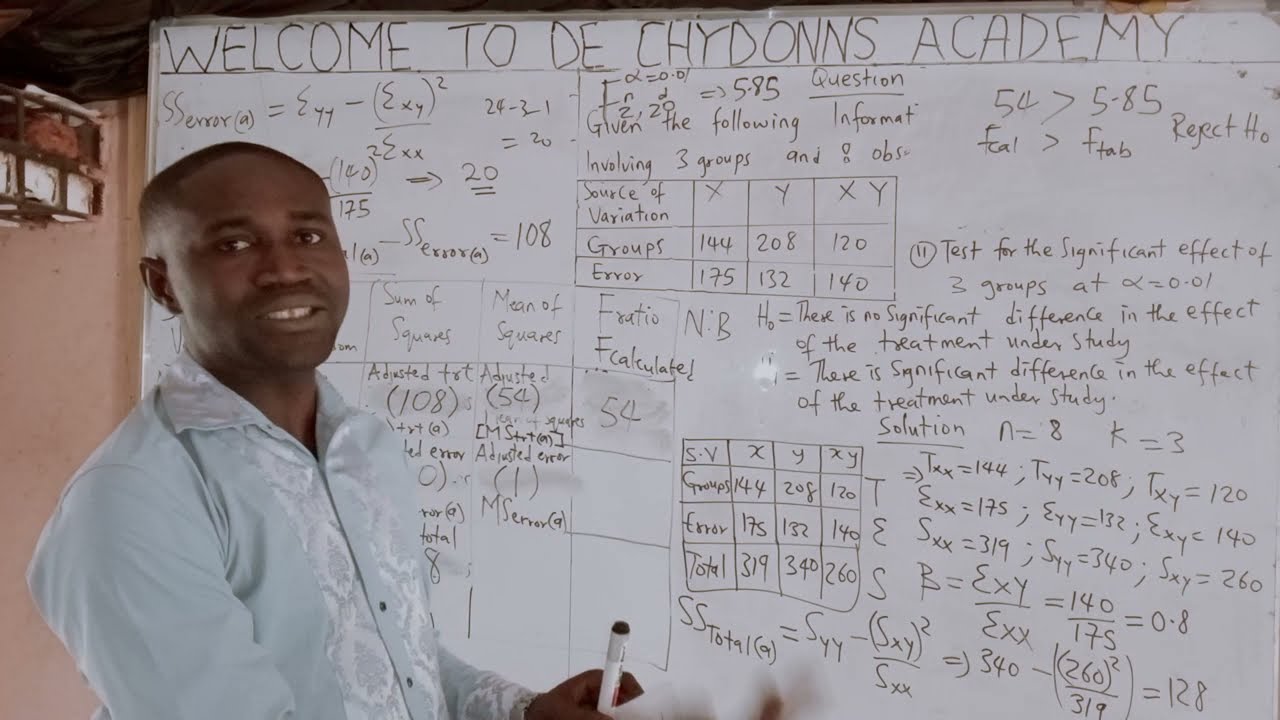 WELCOME TO DE CHYDONNS ACADEMY
SSerror(a) = Ɛyy - (Ɛxy)²
Ɛxx
24-3-1
= 20
(140)²
175
=> 20
SSerror(a) = 108
Sum of
Squares
Mean of
Squares
F ratio
Fcalculated
Adjusted trt
(108)
trt(a)
error
Adjusted
(54)
squares
[MStrt(a)]
Adjusted error
(1)
MSerror(a)
54
total
8
F α=0.01
2, 20 => 5.85
Question
Given the following Informat
Involving 3 groups and 8 obs
Source of Variation X Y X Y
Groups 144 208 120
Error 175 132 140
54 > 5.85
Fcal > Ftab
Reject Ho
(ii) Test for the Significant effect of
3 groups at α=0.01
N:B Ho = There is no Significant difference in the effect
of the treatment under Study
= There is Significant difference in the effect
of the treatment under Study.
Solution n = 8 k = 3
S.V x y xy
Groups 144 208 120 T
Error 175 132 140 Ɛ
Total 319 340 260 S
=> Txx = 144 ; Tyy = 208 ; Txy = 120
Ɛxx = 175 ; Ɛyy = 132 ; Ɛxy = 140
Sxx = 319 ; Syy = 340 ; Sxy = 260
B = Ɛxy = 140 = 0.8
Ɛxx 175
SSTotal(a) = Syy - (Sxy)² => 340 - ((260)²) = 128
Sxx 319